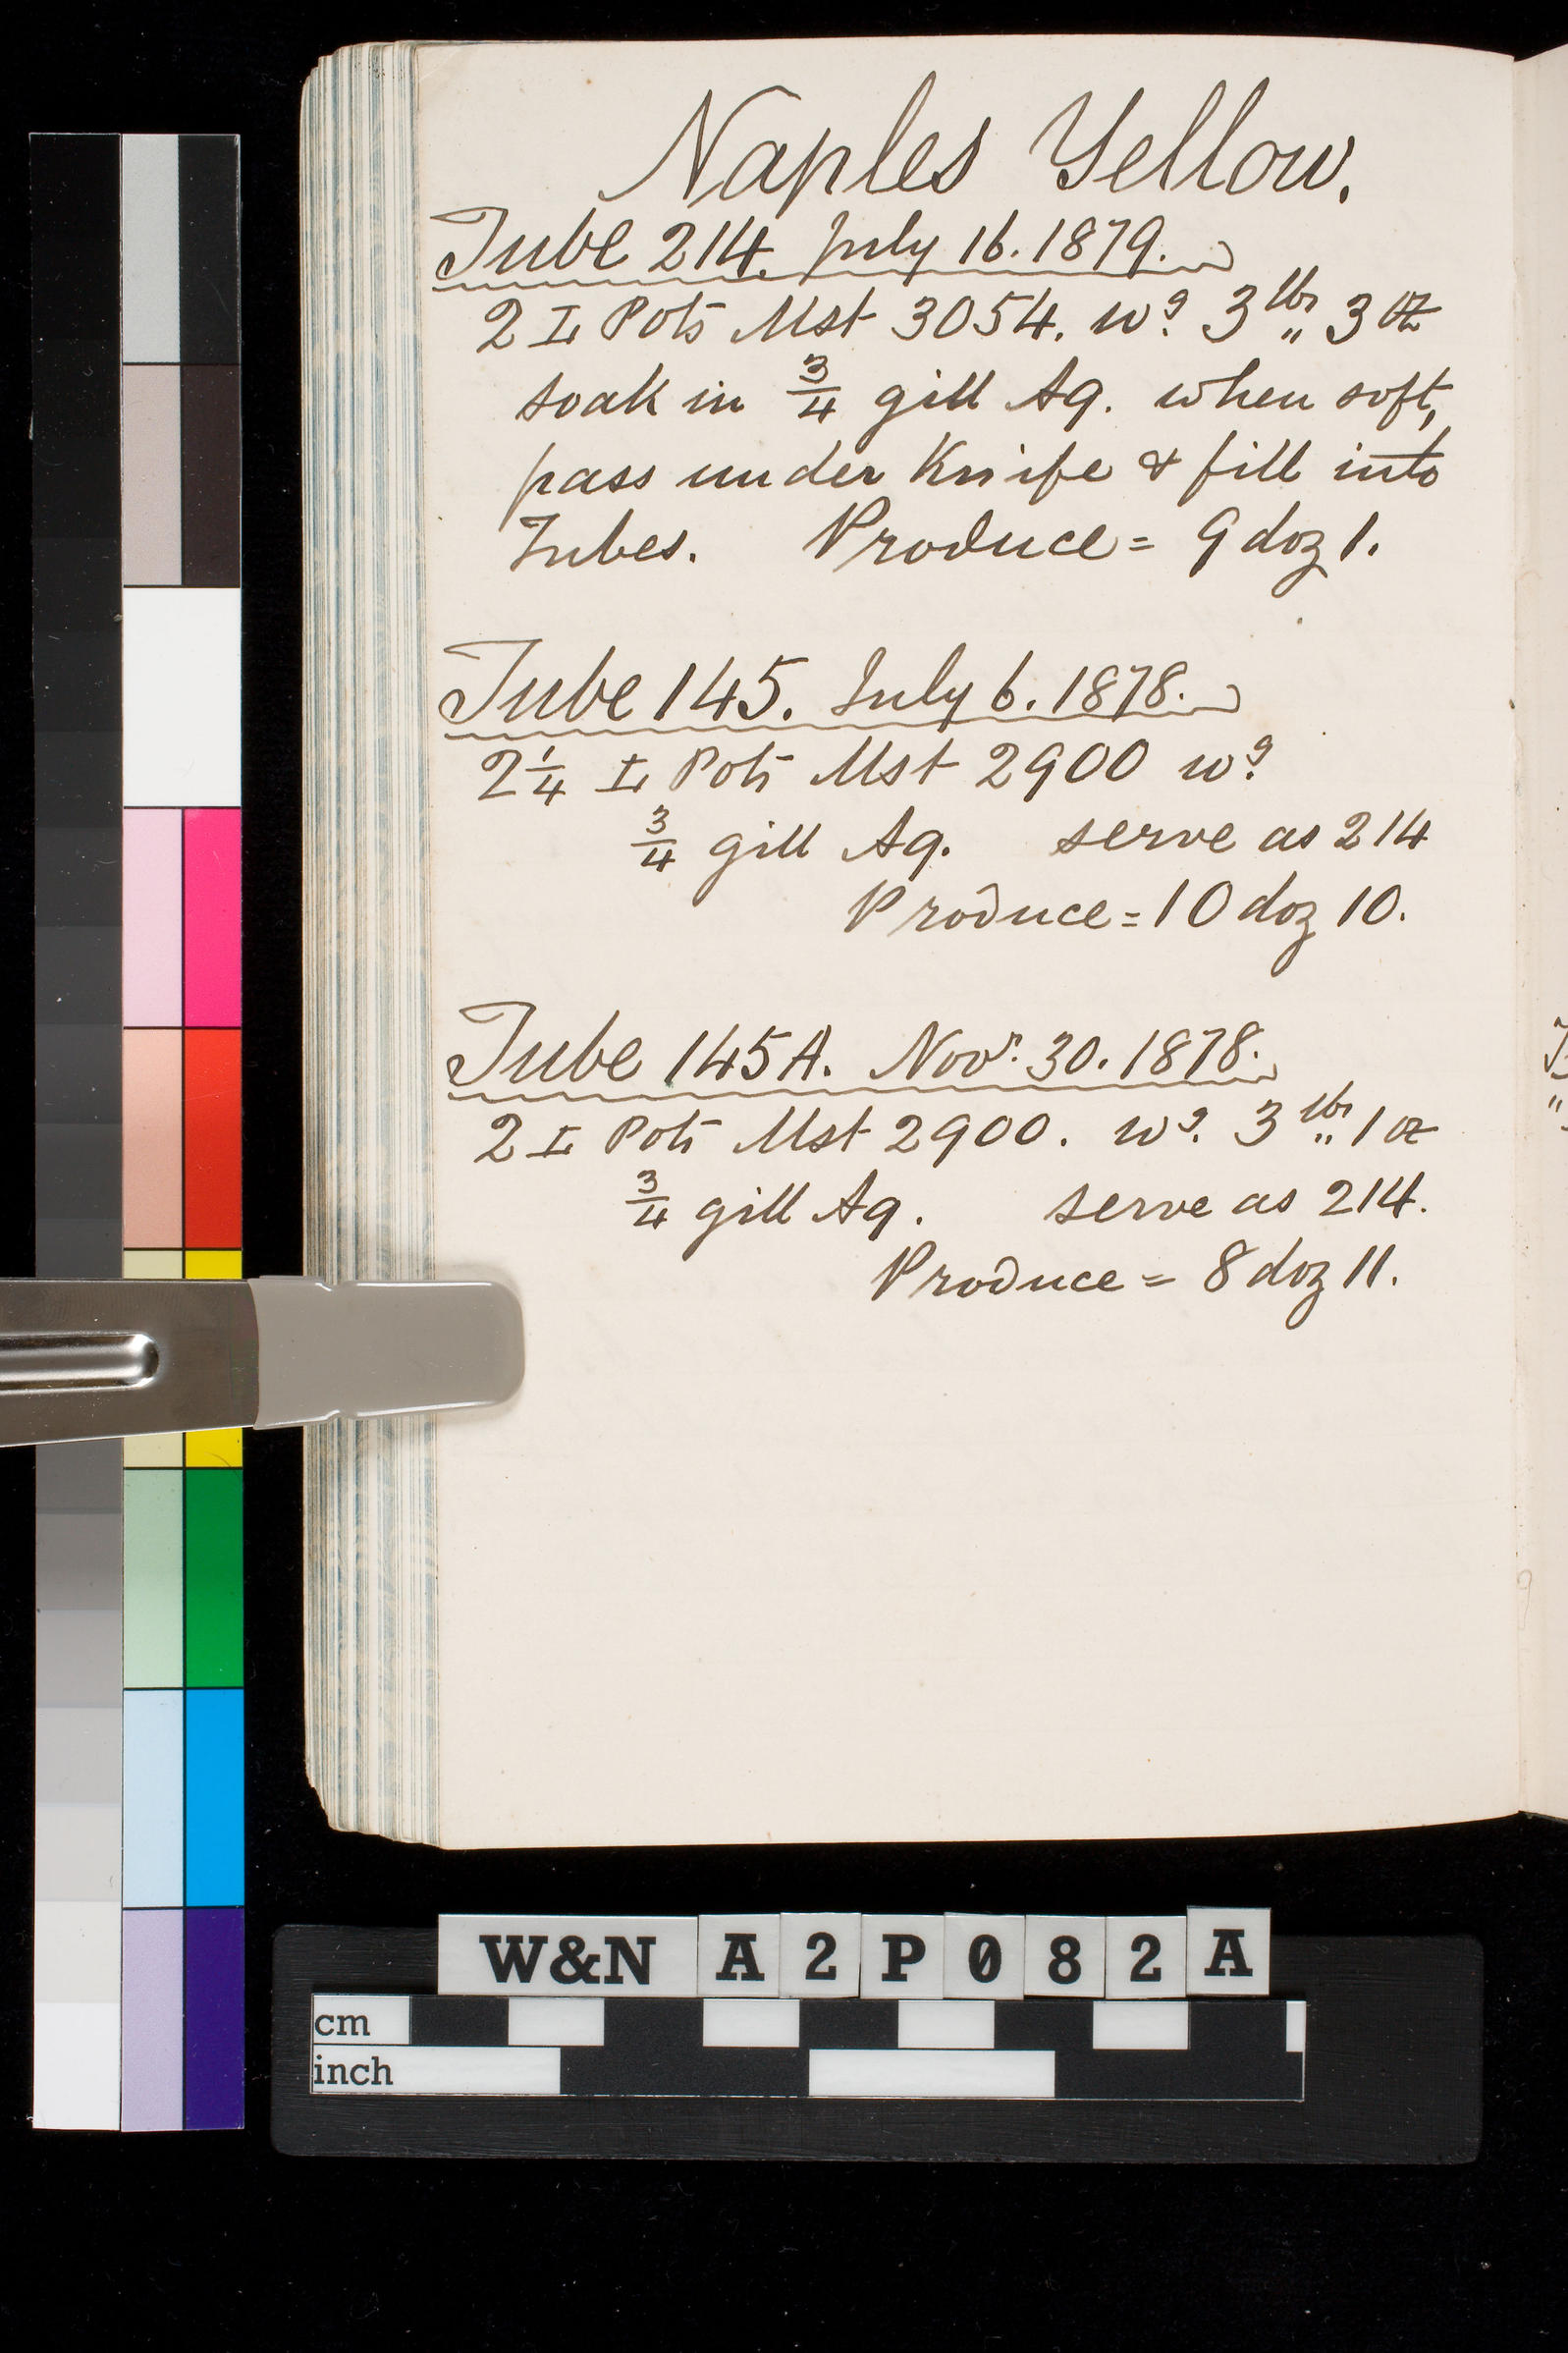 Naples Yellow.
Tube 214. July 16. 1879.
2 I Pots Mst 3054. wg. 3 lbs „ 3 oz
soak in 3/4 gill Aq. when soft,
pass under Knife & fill into
Tubes. Produce = 9 doz 1.
Tube 145. July 6. 1878.
2 1/4 I Pots Mst 2900 wg.
3/4 gill Aq. serve as 214
Produce = 10 doz 10.
Tube 145A. Novr. 30. 1878.
2 I Pots Mst 2900. wg. 3 lbs „ 1 oz
3/4 gill Aq. serve as 214.
Produce = 8 doz 11.
W&N A2P082A
cm
inch